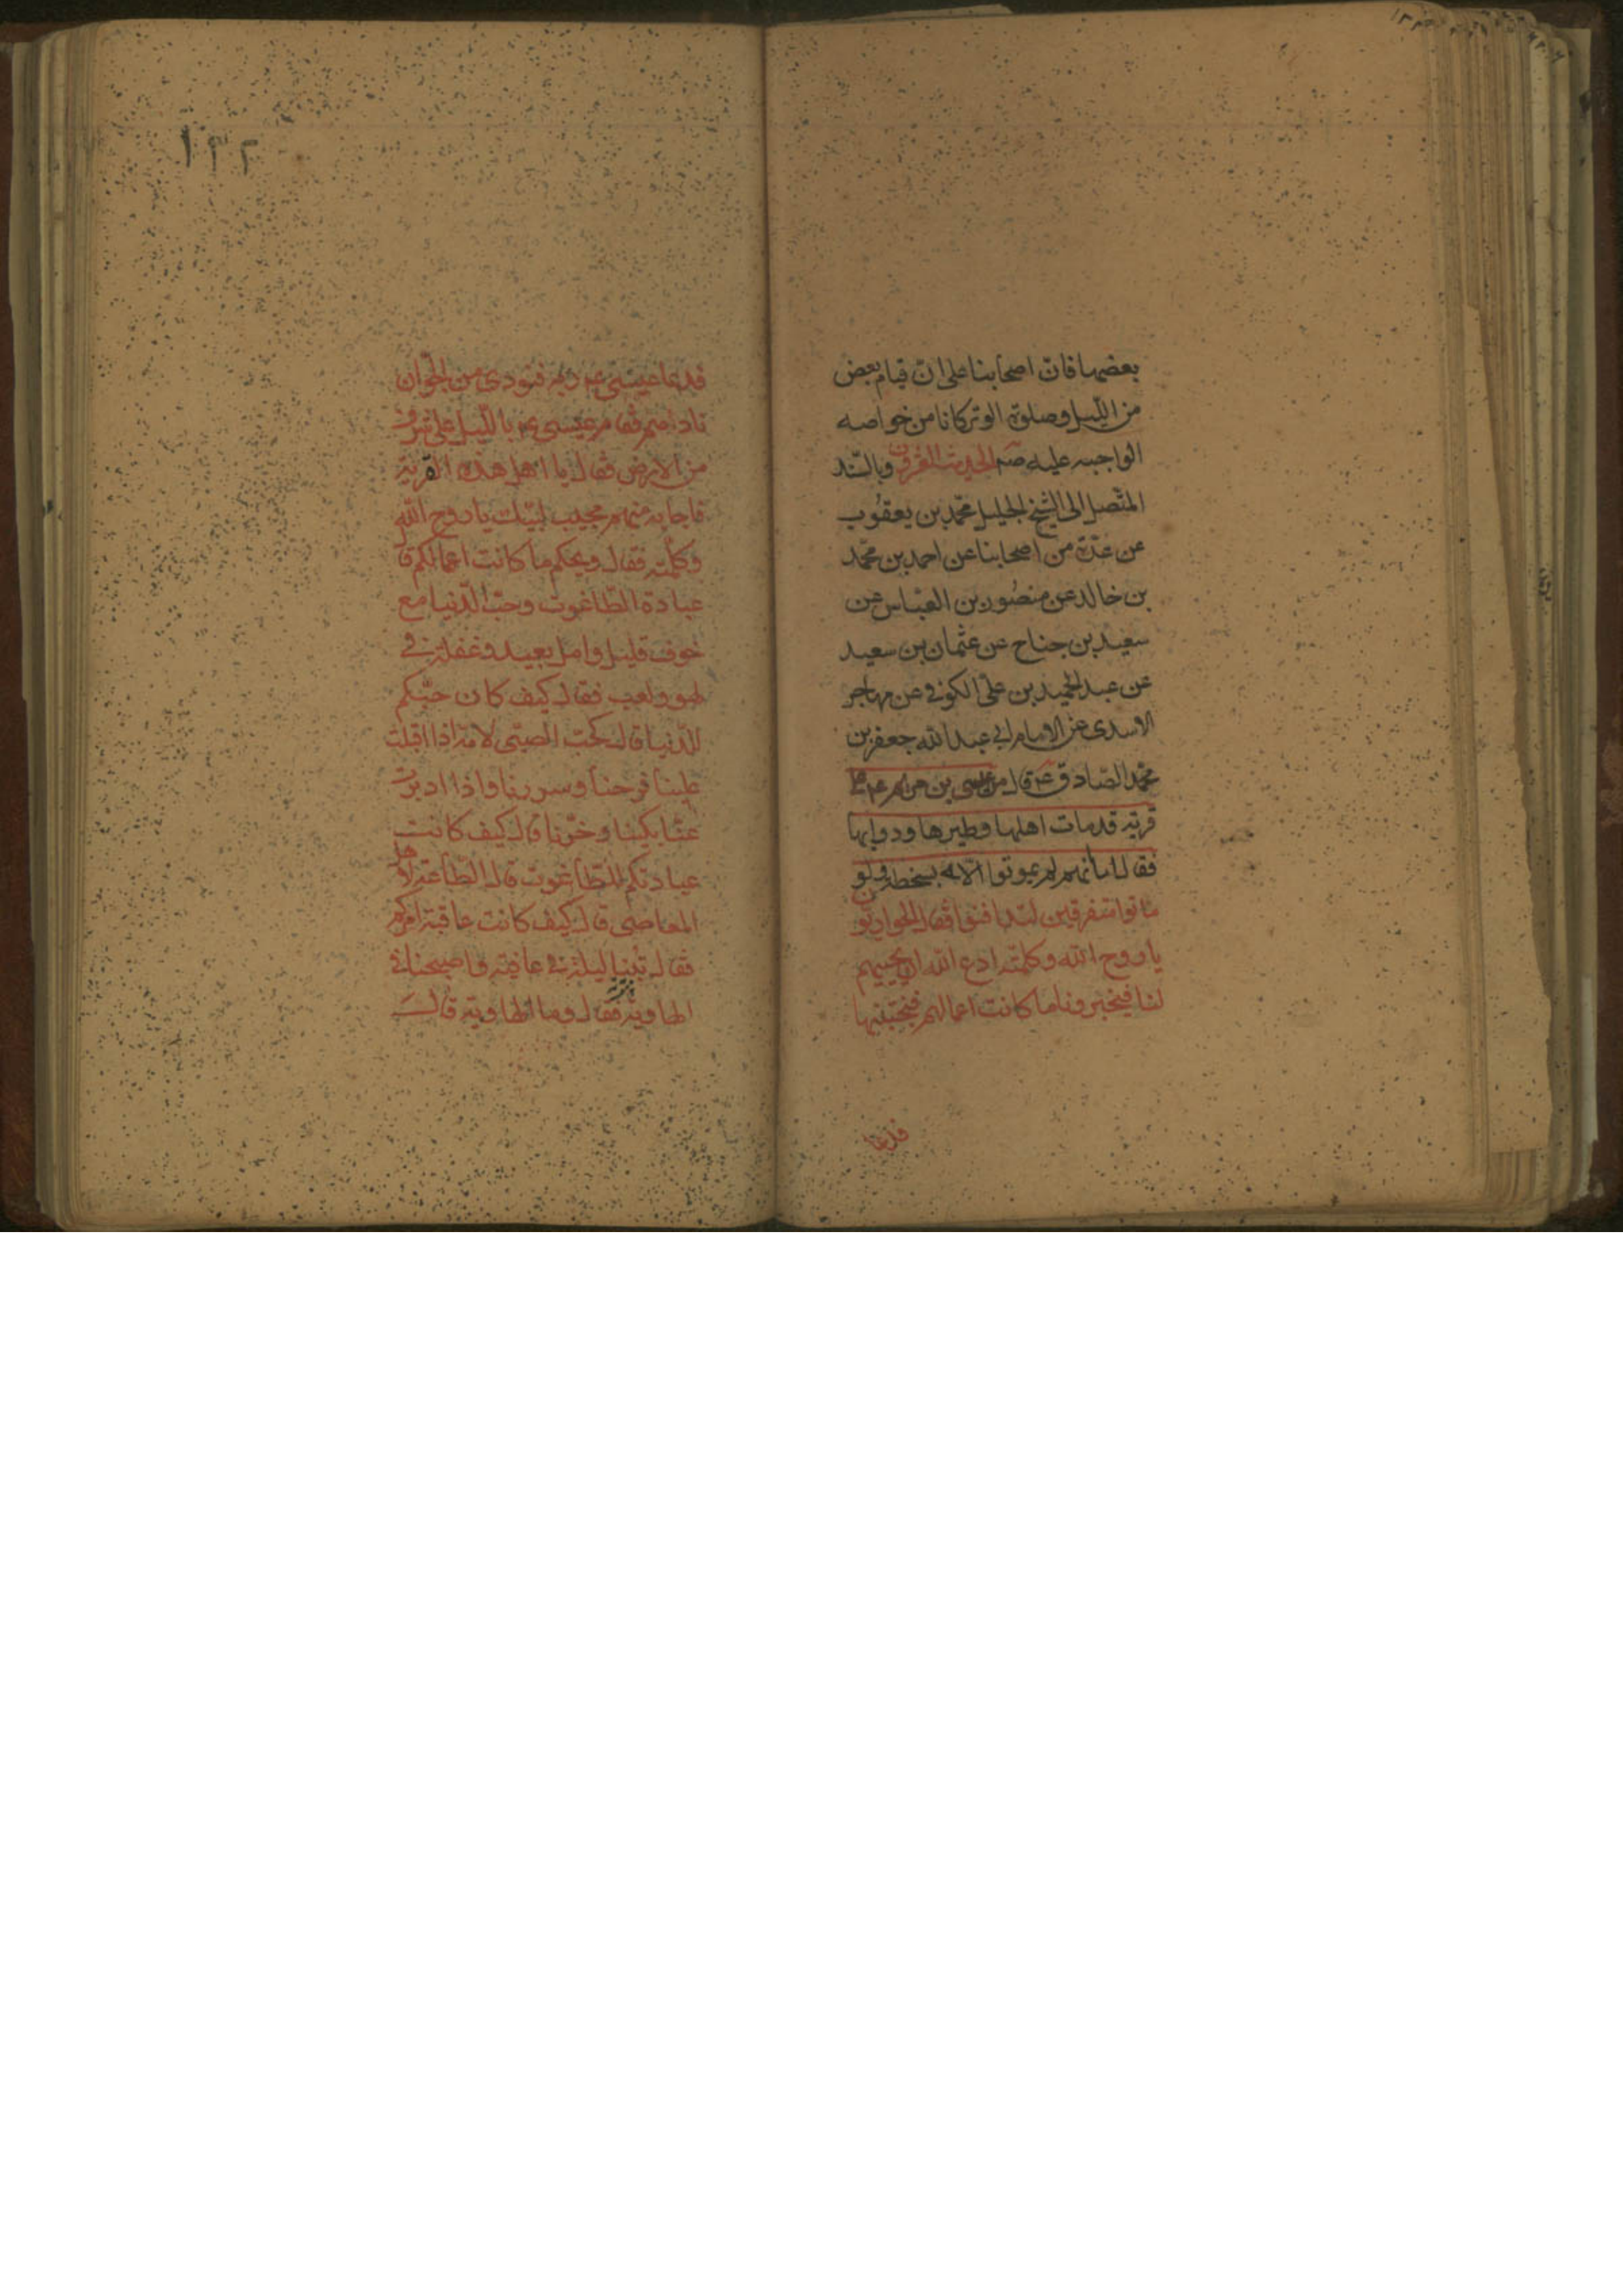 بعضها فانّ اصحابنا على انّ قيام بعض
من اللّيل وصلوة الوتر كانا من خواصه
الواجبه عليه صم الحديث العشرون وبالسّند
المتّصل الى الشّيخ الجليل محمّد بن يعقوب
عن عدّة من اصحابنا عن احمد بن محمّد
بن خالد عن منصور بن العبّاس عن
سعيد بن جناح عن عثمان بن سعيد
عن عبد الحميد بن علىّ الكوفى عن مهاجر
الاسدى عن الامام ابى عبد الله جعفر بن
محمّد الصّادق ع قال مر عيسى بن مريم ع على
قرية قد مات اهلها وطيرها ودوابها
فقال اما انهم لم يموتوا الّا بسخطة ولو
ماتوا متفرقين لتدافنوا فقال الحواريّون
يا روح الله وكلمته ادع الله ان يحييهم
لنا فيخبرونا ما كانت اعمالهم فنجتنبها
فدعا
١٣٢
فدعا عيسى ع ربه فنودى من الجوّ ان
نادهم فقام عيسى ع باللّيل على شرف
من الارض فقال يا اهل هذه القرية
فاجابه منهم مجيب لبّيك يا روح الله
وكلمته فقال ويحكم ما كانت اعمالكم قا
عبادة الطّاغوت وحبّ الدّنيا مع
خوف قليل وامل بعيد وغفلة فى
لهو ولعب فقال كيف كان حبّكم
للدّنيا قال كحبّ الصبّى لامّه اذا اقبلت
علينا فرحنا وسررنا واذا ادبرت
عنّا بكينا وحزنّا قال كيف كانت
عبادتكم للطّاغوت قال الطّاعة لاهل
المعاصى قال كيف كانت عاقبة امركم
فقال بتنا ليلة فى عافية واصبحنا فى
الهاوية فقال وما الهاوية قال